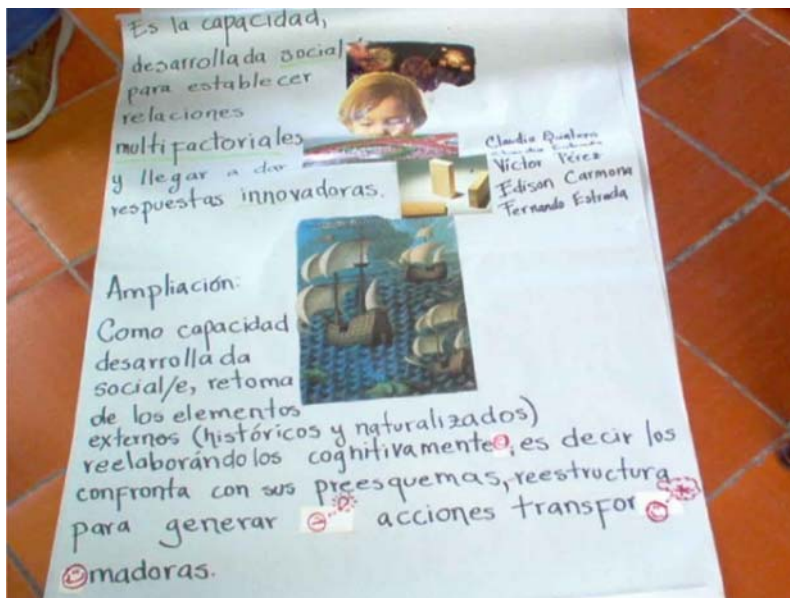 Es la capacidad,
desarrollada social
para establecer
relaciones
multifactoriales
y llegar a dar
respuestas innovadoras.
Claudia Quintero
Víctor Pérez
Edison Carmona
Fernando Estrada
Ampliación:
Como capacidad
desarrollada
social/e, retoma
de los elementos
externos (históricos y naturalizados)
reelaborándolos cognitivamente, es decir los
confronta con sus preesquemas, reestructura
para generar acciones transfor
madoras.